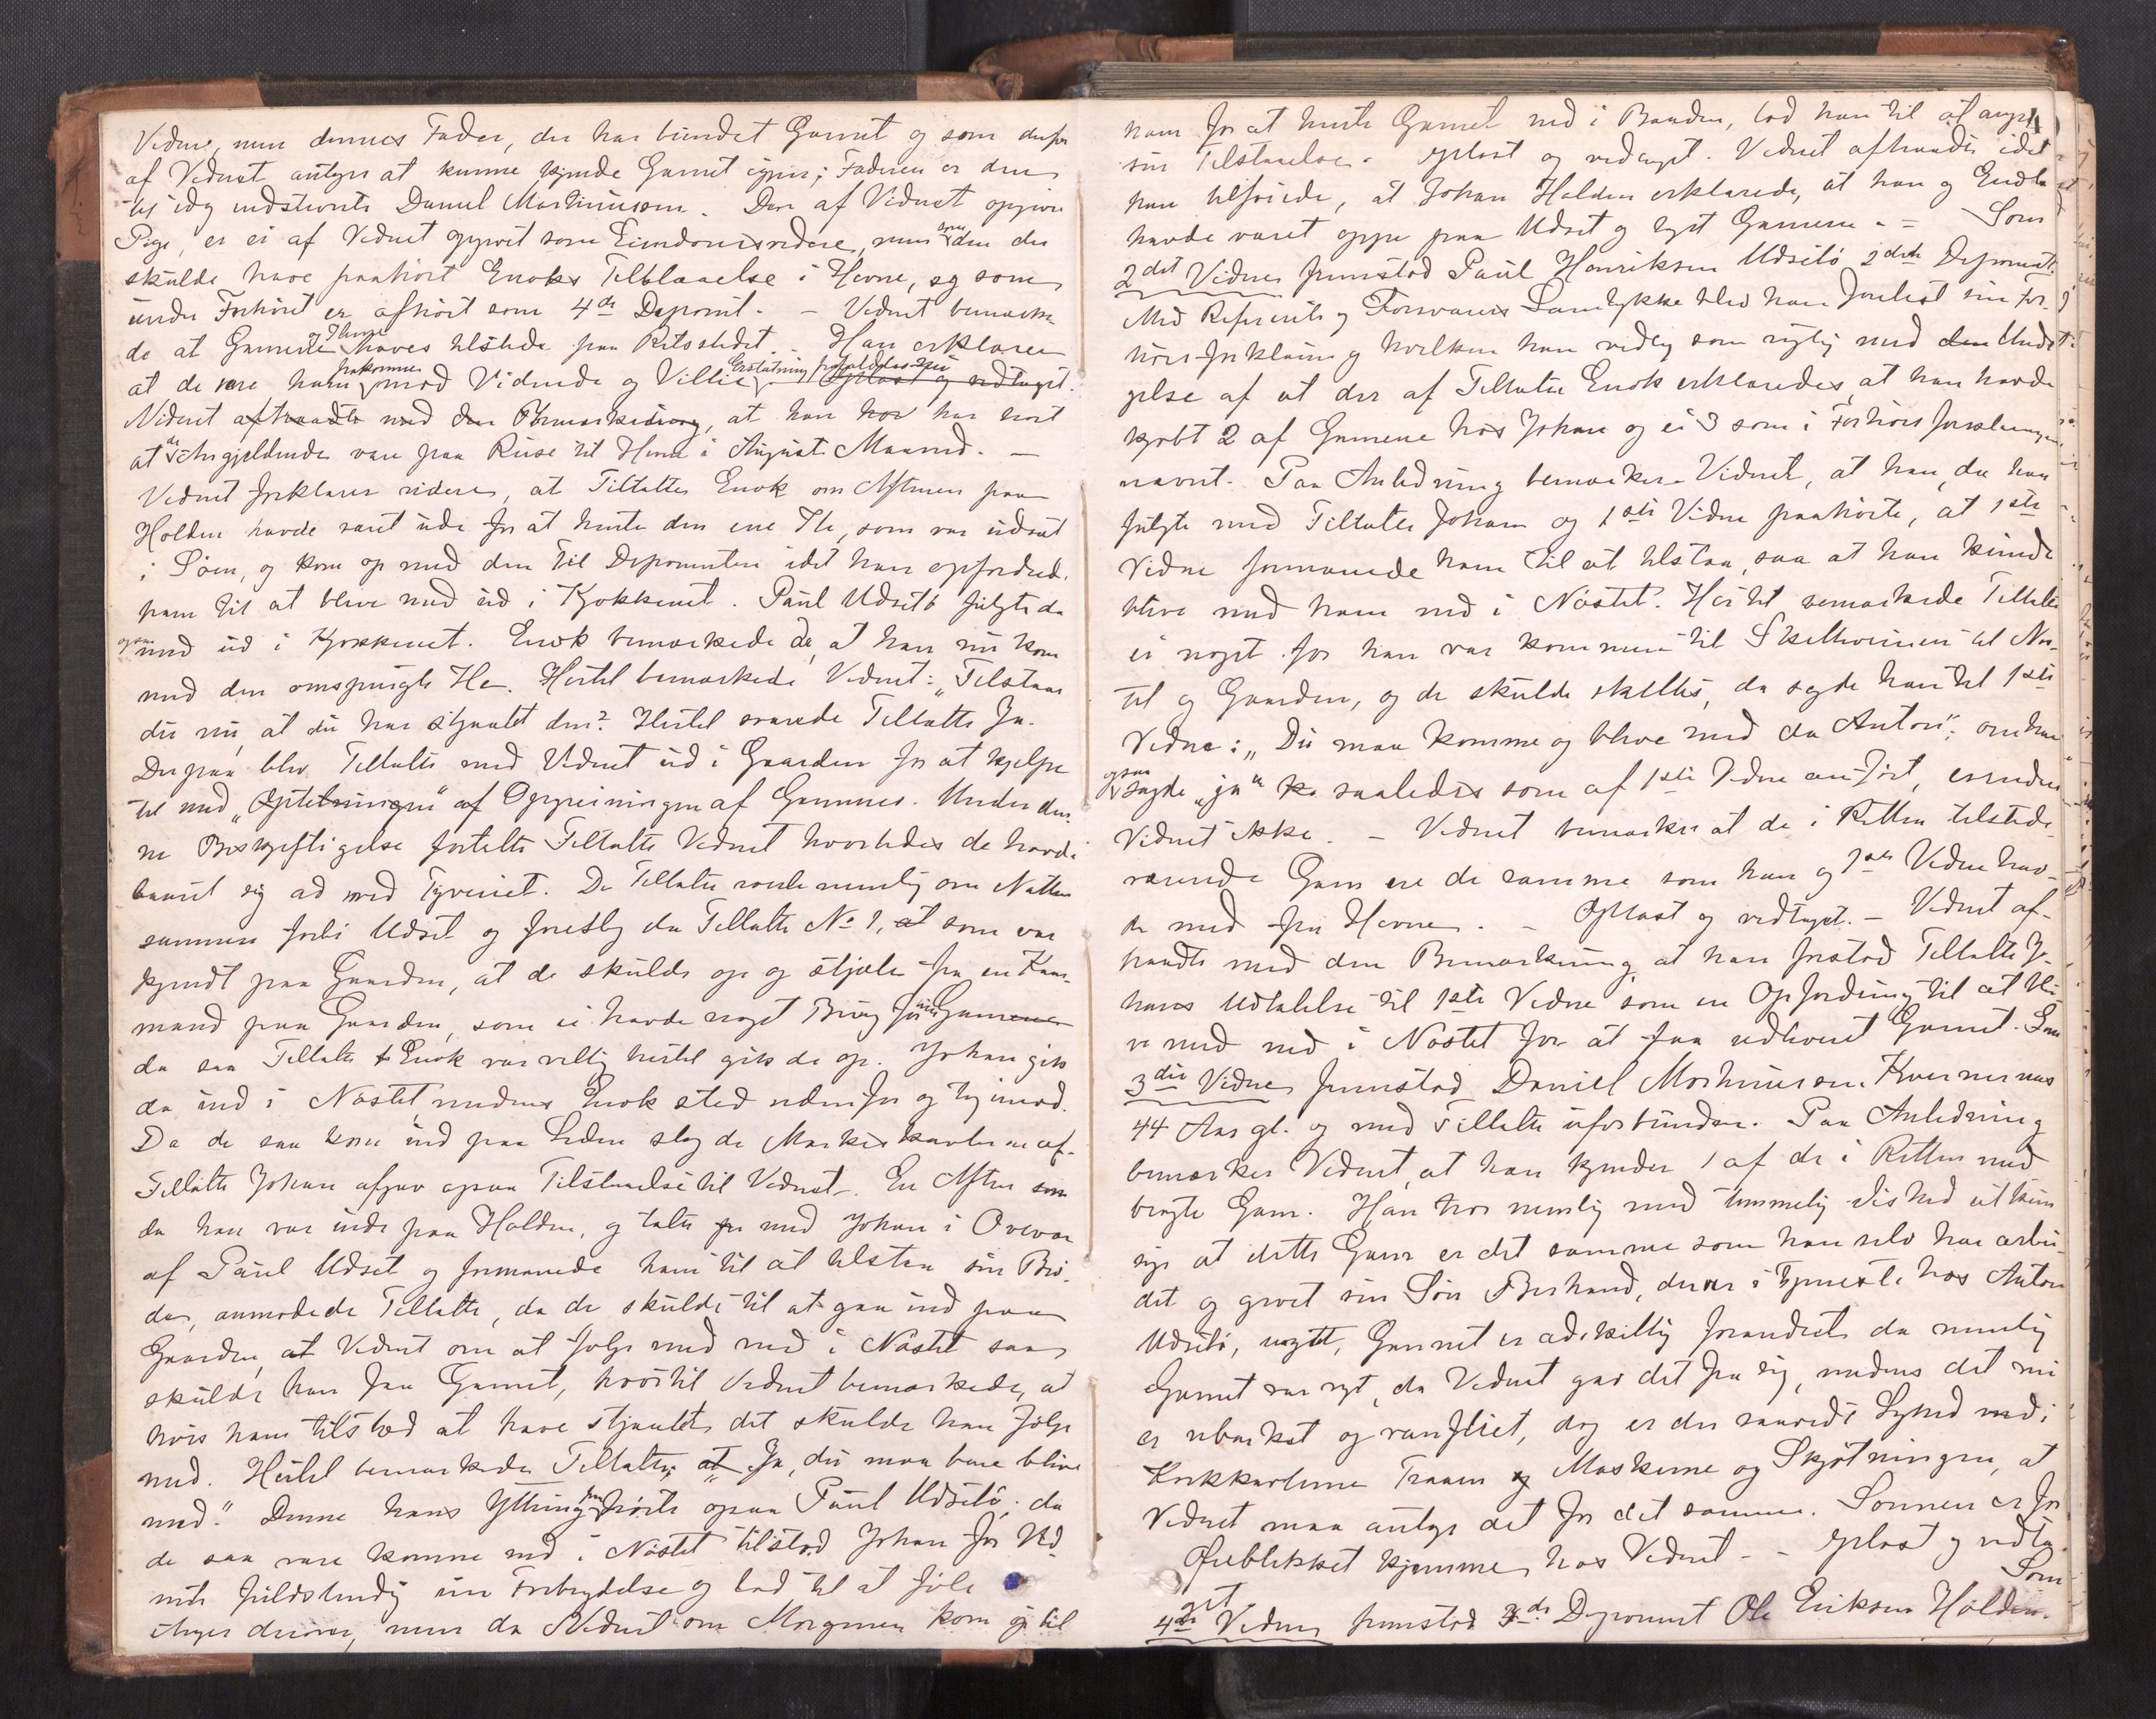 Vidne, men dennes Fader, der har bundet Garnet og som derfor
af Vidnet antages at kunne kjende Garnet igjen; Faderen er den
til idag indstevnte Daniel Mortinusson. Den af Vidnet opgivne
Pige, er ei af Vidnet opgivet som Eiendomsvidne, men som den der
skulde have paahört Enoks Tilstaaelse i Hevne, og som
under Forhöret er afhört som 4de Deponent. - Vidnet bemærke-
de at Garnene og Ilerne haves tilstede paa Retsstedet. Han erklærer
at de ere ham frakomne mod Vidende og Villie. Erstatning frafaldes. Oplæst og vedtaget.
Vidnet aftraadte med den Bemærkning, at han har hört
at de Angjeldende vare paa Reise til Hevne i August Maaned. -
Vidnet forklarer videre, at Tiltalte Enok om Aftenen paa
Holden havde været ude for at hente den ene Ile, som var udsat
i Söen, og kom op med den til Deponenten idet han opfordred.
ham til at blive med ud i Kjökkenet. Paul Udsetö fulgte da
ogsaa med ud i Kjökkenet. Enok bemærkede da, at han nu kom
med den omspurgte Ile. Hertil bemærkede Vidnet: "Tilstaar
du nu, at du har stjaalet den? Hertil svarede Tiltalte Ja.
Derpaa blev Tiltalte med Vidnet ud i Gaarden for at hjelpe
til med Opgreiningen af Garnene. Under den-
ne Beskjeftigelse fortalte Tiltalte Vidnet hvorledes de havde
baaret sig ad med Tyveriet. De Tiltalte roede nemlig om Natten
sammen forbi Udset og foreslog da Tiltalte No 1, at som var
kjendt paa Gaarden, at de skulde op og stjæle fra en Kaar-
mand paa Gaarden, som ei havde noget Brug for sine Garn
da saa Tiltalte Enok var villig hertil gik de op. Johan gik
da ind i Nöstet medens Enok stod udenfor og tog imod.
Da de saa kom ind paa Leden slog de Mærkeskavlerne af.
Tiltalte Johan afgav ogsaa Tilstaaelse til Vidnet. En Aften som
da han var inde paa Holden, og talte med Johan i Overvær
af Paul Udset og formanede ham til at tilstaa sin Brö-
de, anmodede Tiltalte, da de skulde til at gaa ind paa
Gaarden, at Vidnet om at fölge med ned i Nöstet saa
skulde han faa Garnet, hvortil Vidnet bemærkede, at
hvis han tilstod at have stjaalet det skulde han fölge
med. Hertil bemærkede Tiltalte; at "Ja, du maa bare blive
med." Denne hans Yttring hörte ogsaa Paul Udsetö; da
de saa vare komne ned i Nöstet tilstod Johan for Vid-
net fuldstendig sin Forbrydelse og lod til at föle
Anger derover, men da Vidnet om Morgenen kom op til
ham for at hente Garnet ned i Baaden, lod han til at angre
sin Tilstaaelse. Oplæst og vedtaget. Vidnet aftraadte idet
han tilföiede, at Johan Holden erklærede, at han og Enok
havde været oppe paa Udset og taget Garnene. - Som
2det Vidne fremstod Paul Henriksen Udsetö 2den Deponent.
Med Referents og Forsvarers Samtykke blev ham forelæst sin for-
hörsforklaring hvilken han vedtog som rigtig med Und-
tagelse af at der af Tiltalte Enok erklæredes, at han havde
kjöbt 2 af Garnene hos Johan og ei 3 som i Forhörsforklaringen
nævnt. Paa Anledning bemærker Vidnet, at han, da han
fulgte med Tiltalte Johan og 1ste Vidne paahörte, at 1ste
Vidne formanede ham til at tilstaa, saa at han kunde
blive med ham ned i Nöstet. Hertil bemærkede Tiltalte
ei noget för han var kommen til Skilleveien til Nös-
tet og Gaarden, og de skulde skilles, da sagde han til 1ste
Vidne: "Du maa komme og blive med da Anton"; om han
ogsaa sagde "ja" saaledes som af 1ste Vidne anfört, erindrer
Vidnet ikke. - Vidnet bemærker at de i Retten tilstede-
værende Garn ere de samme som han og 1ste Vidne hav-
de med fra Hevne. - Oplæst og vedtaget. - Vidnet af-
traadte med den Bemærkning, at han forstod Tiltalte Jo-
hans Udtalelse til 1ste Vidne som en Opfordring til at bli-
ve med ned i Nöstet for at faa udleveret Garnet. Som
3die Vidne fremstod Daniel Mortinusson Kvernesnes
44 Aar gl. og med Tiltalte uforbunden. Paa Anledning
bemærker Vidnet, at han kjender 1 af de i Retten med
bragte Garn. Han tror nemlig med temmelig Vished at kunne
sige at dette Garn er det samme som han selv har arbei-
det og givet sin Sön Bernhard, der er i Tjeneste hos Anton
Udsetö, Garnet er adskillig forandret da nemlig
Garnet var nyt, da Vidnet gav det fra sig, medens det nu
er ubarket og vanfliet, dog er der saavidt Lighed med
Korkkavlerne Traaen og Maskerne og Skjötningen, at
Vidnet maa antage det for det samme. Sönnen er for
Öieblikket hjemme hos Vidnet. - Oplæst og vedta-
get. Som
4de Vidne fremstod 3die Deponent Ole Eriksen Holden.